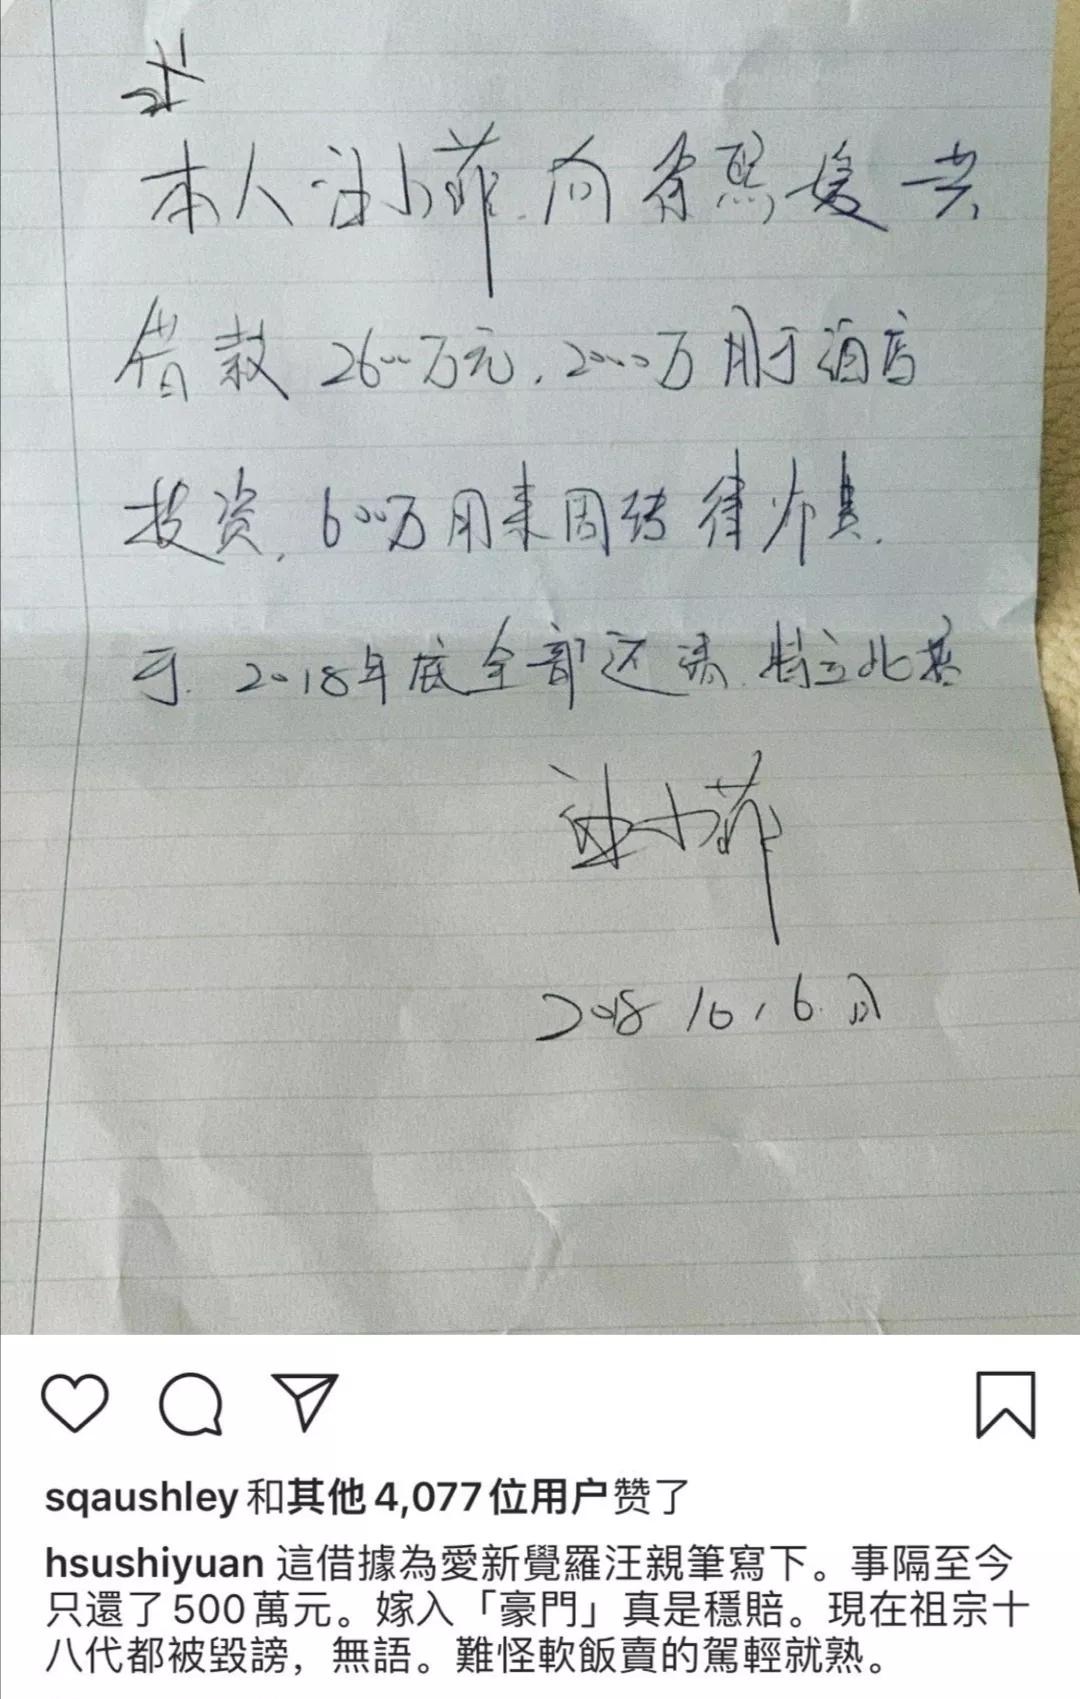 本人汪小菲.向徐熙媛共
借款 2600万元,2000万用于酒店
投资,600万用来周转律师费.
于.2018年底全部还清.特立此据
汪小菲
2018 10,6.
sqaushley和其他 4,077 位用户赞了
hsushiyuan 這借據為愛新覺羅汪親筆寫下。事隔至今
只還了500萬元。嫁入「豪門」真是穩賠。現在祖宗十
八代都被毀謗，無語。難怪軟飯賣的駕輕就熟。